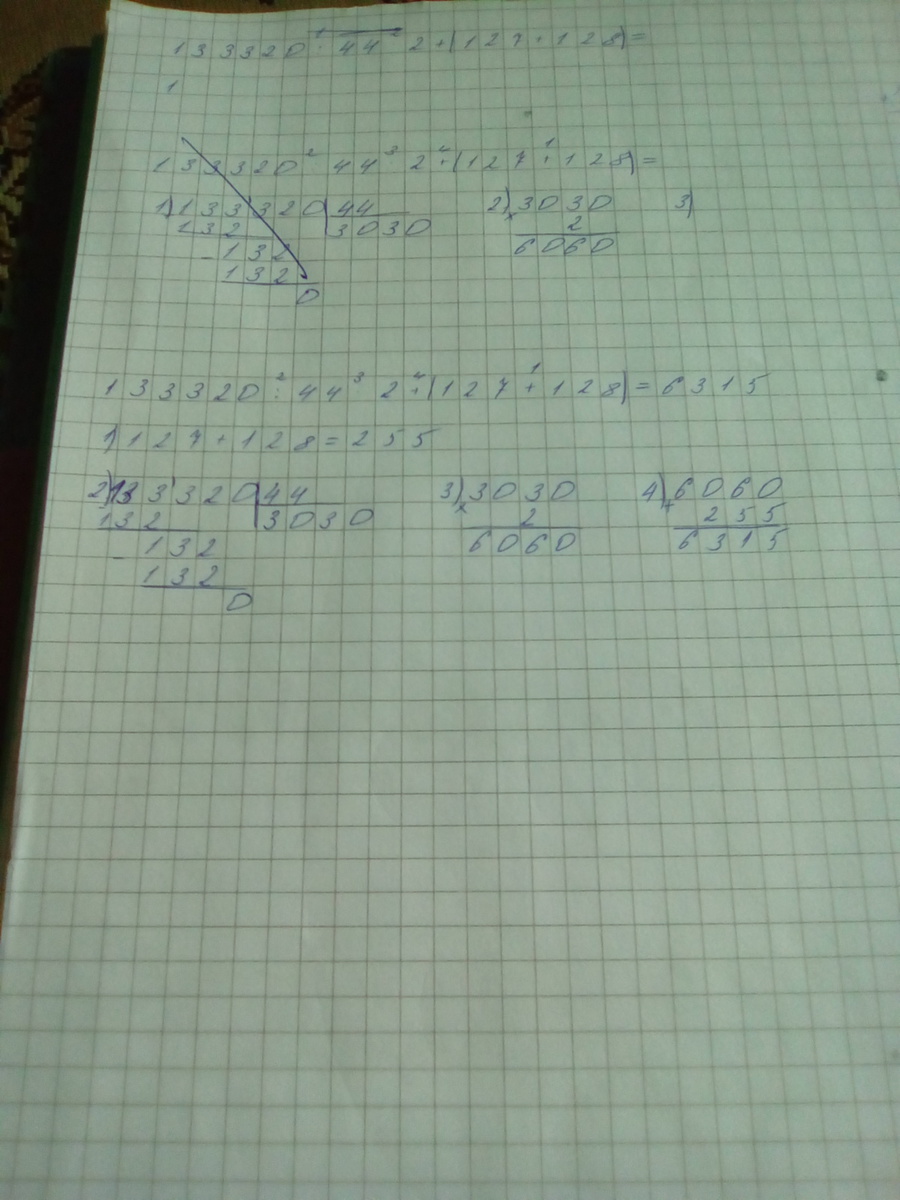 133320 : 44 · 2 + (127 + 128) =
1
133320 : 44 · 2 + (127 + 128) =
1) 133320 | 44 2) 3030 3)
132 3030 × 2
- 132 6060
132
0
133320 : 44 · 2 + (127 + 128) = 6315
1) 127 + 128 = 255
2) 133320 | 44 3) 3030 4) 6060
132 3030 × 2 + 255
- 132 6060 6315
132
0